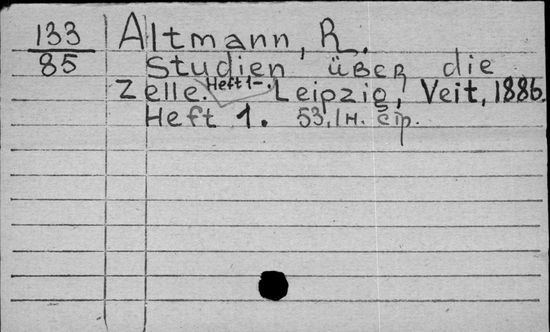 133
85
Altmann, R.
Studien über die
Zelle. Heft 1-. Leipzig, Veit, 1886.
Heft 1. 53,1